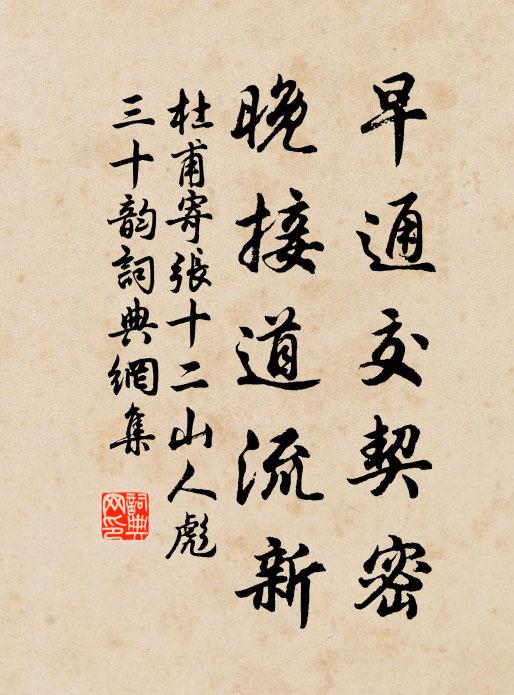 早通交契密
晚接道流新
杜甫寄張十二山人彪
三十韵詞典網集
詞典
网印